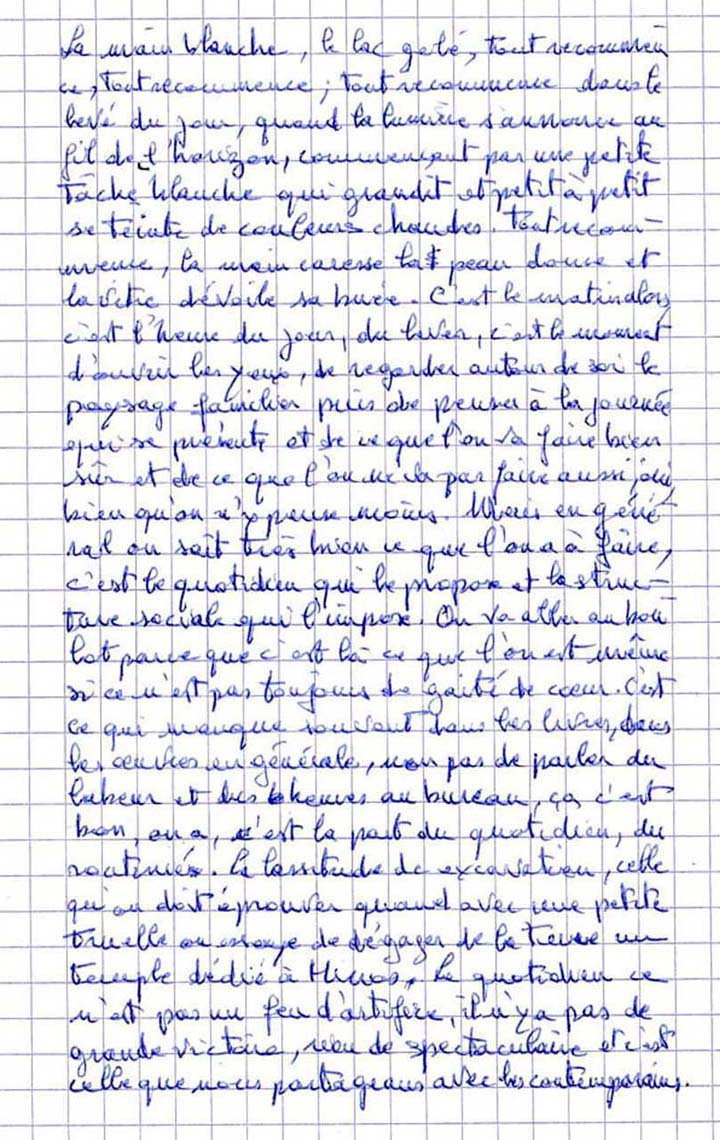 La main blanche, le lac gelé, tout recommen
ce, tout recommence ; tout recommence dans le
levé du jour, quand la lumière s'annonce au
fil de l'horizon, commençant par une petite
tâche blanche qui grandit et petit à petit
se teinte de couleurs chaudes. Tout recom-
mence, la main caresse la peau douce et
la vitre dévoile sa buée. C'est le matin alors
c'est l'heure du jour, du lever, c'est le moment
d'ouvrir les yeux, de regarder autour de soi le
paysage familier puis de penser à la journée
qui se présente et de ce que l'on va faire bien
sûr et de ce que l'on ne va pas faire aussi,
bien qu'on n'y pense moins. Mais en géné
ral on sait très bien ce que l'on a à faire,
c'est le quotidien qui le propose et la struc-
ture sociale qui l'impose. On va aller au bou
lot parce que c'est là ce que l'on est même
si ce n'est pas toujours de gaité de cœur. C'est
ce qui manque souvent dans les livres, dans
les œuvres en générale, non pas de parler du
labeur et des heures au bureau, ça c'est
bon, on a, c'est la part du quotidien, du
routinier. La lassitude de excavation, celle
qu'on doit éprouver quand avec une petite
truelle on essaye de dégager de la terre un
temple dédié à Le quotidien ce
n'est pas un feu d'artifice, il n'y a pas de
grande victoire, rien de spectaculaire et c'est
celle que nous partageons avec les contemporains.